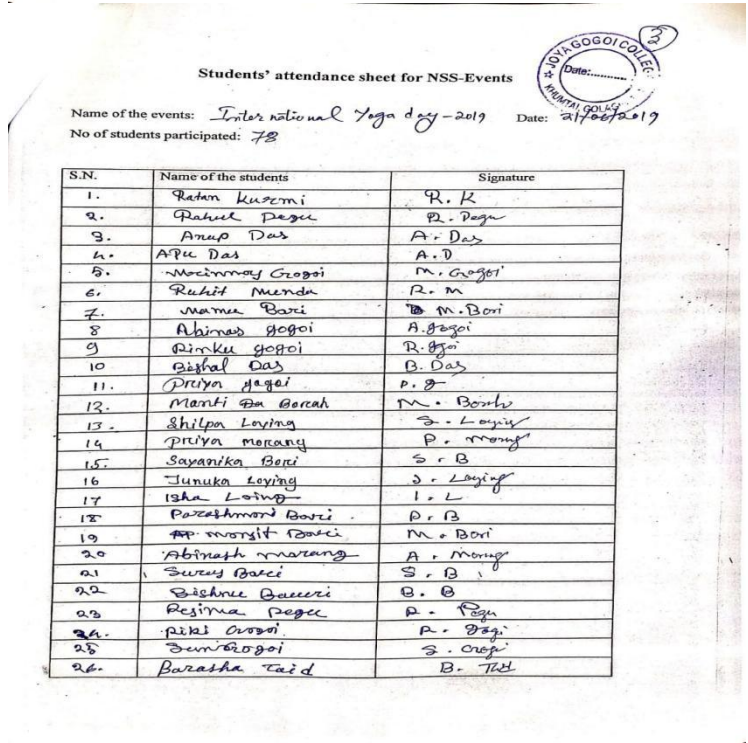 3
JOYA GOGOI COLLEGE
Date:............
KHUMTAI, GOLAGHAT
Students' attendance sheet for NSS-Events
Name of the events: International Yoga day-2019 Date: 21/06/2019
No of students participated: 78
S.N. Name of the students Signature
1. Ratan Kurmi R. K
2. Rahul Pegu R. Pegu
3. Anup Das A. Das
4. APu Das A. D
5. Gogoi M. Gogoi
6. Ruhit Munda R. M
7. Bori M. Bori
8 Abinas gogoi A. gogoi
9 Rinku gogoi R. gogoi
10 Bishal Das B. Das
11. Priya gogoi P. g
12. Manti Borah M. Borah
13. Shilpa Loying S. Loying
14 Priya morang P. morang
15. Sayanika Bori S. B
16 Junuka Loying J. Loying
17 Isha Loing I. L
18 Parashmoni Bori P. B
19 Bori M. Bori
20 Abinash marang A. Morang
21 Bori S. B
22 Bishnu Bauri B. B
23 Resima Pegu R. Pegu
24. Riki Gogoi R. gogoi
25 Gogoi S. Gogoi
26. Barasha Taid B. Taid